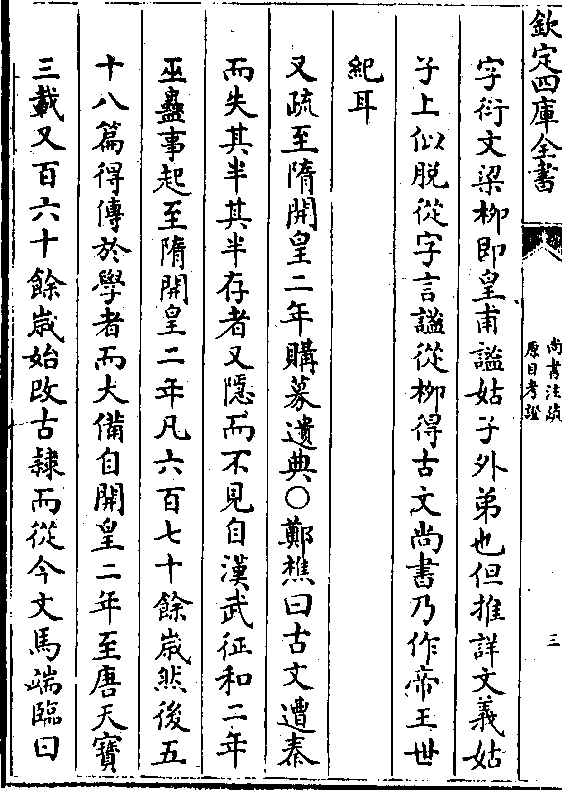 欽定四庫全書
尚書注疏
原目考證
三
字衍文梁柳即皇甫謐姑子外弟也但推詳文義姑
子上似脫從字言謐從柳得古文尚書乃作帝王世
紀耳
又疏至隋開皇二年購募遺典○鄭樵曰古文遭秦
而失其半其半存者又隱而不見自漢武征和二年
巫蠱事起至隋開皇二年凡六百七十餘歲然後五
十八篇得傳於學者而大備自開皇二年至唐天寶
三載又百六十餘歲始改古隸而從今文馬端臨曰